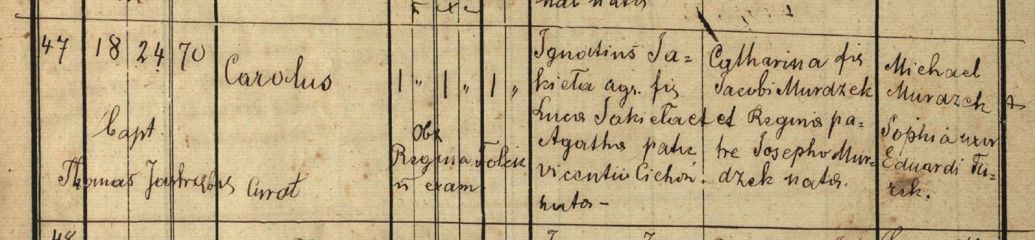 nat nata
47 18 24 70 Carolus 1 " 1 " 1 "
Ignatius Sa=
kieta agr. fis
Lucae Sakieta et
Agatha patre
Vicentio Cichoń.
natos -
Catharina fis
Jacobi Murdzek
et Regina pa-
tre Josepho Mur-
dzek nata.
Michael
Murdzek
Sophia uxor
Eduardi Tu-
rek.
Bapt.
Thomas Curat
Obs
Regina Folcik
n exam.
48